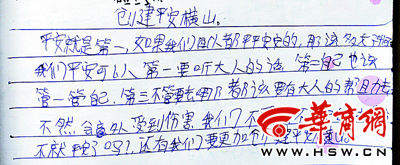 创建平安横山。
平安就是第一,如果我们每个人都平平安安的,那该多么
我们平安可以人 第一要听大人的话 第二自己也
管一管自己,第三不管要去哪 都 要有大人的
不然,会 受到伤害,我们不
不就平安了吗?还有我们要更加创建平安横山。
华商网
WWW.HSW.CN